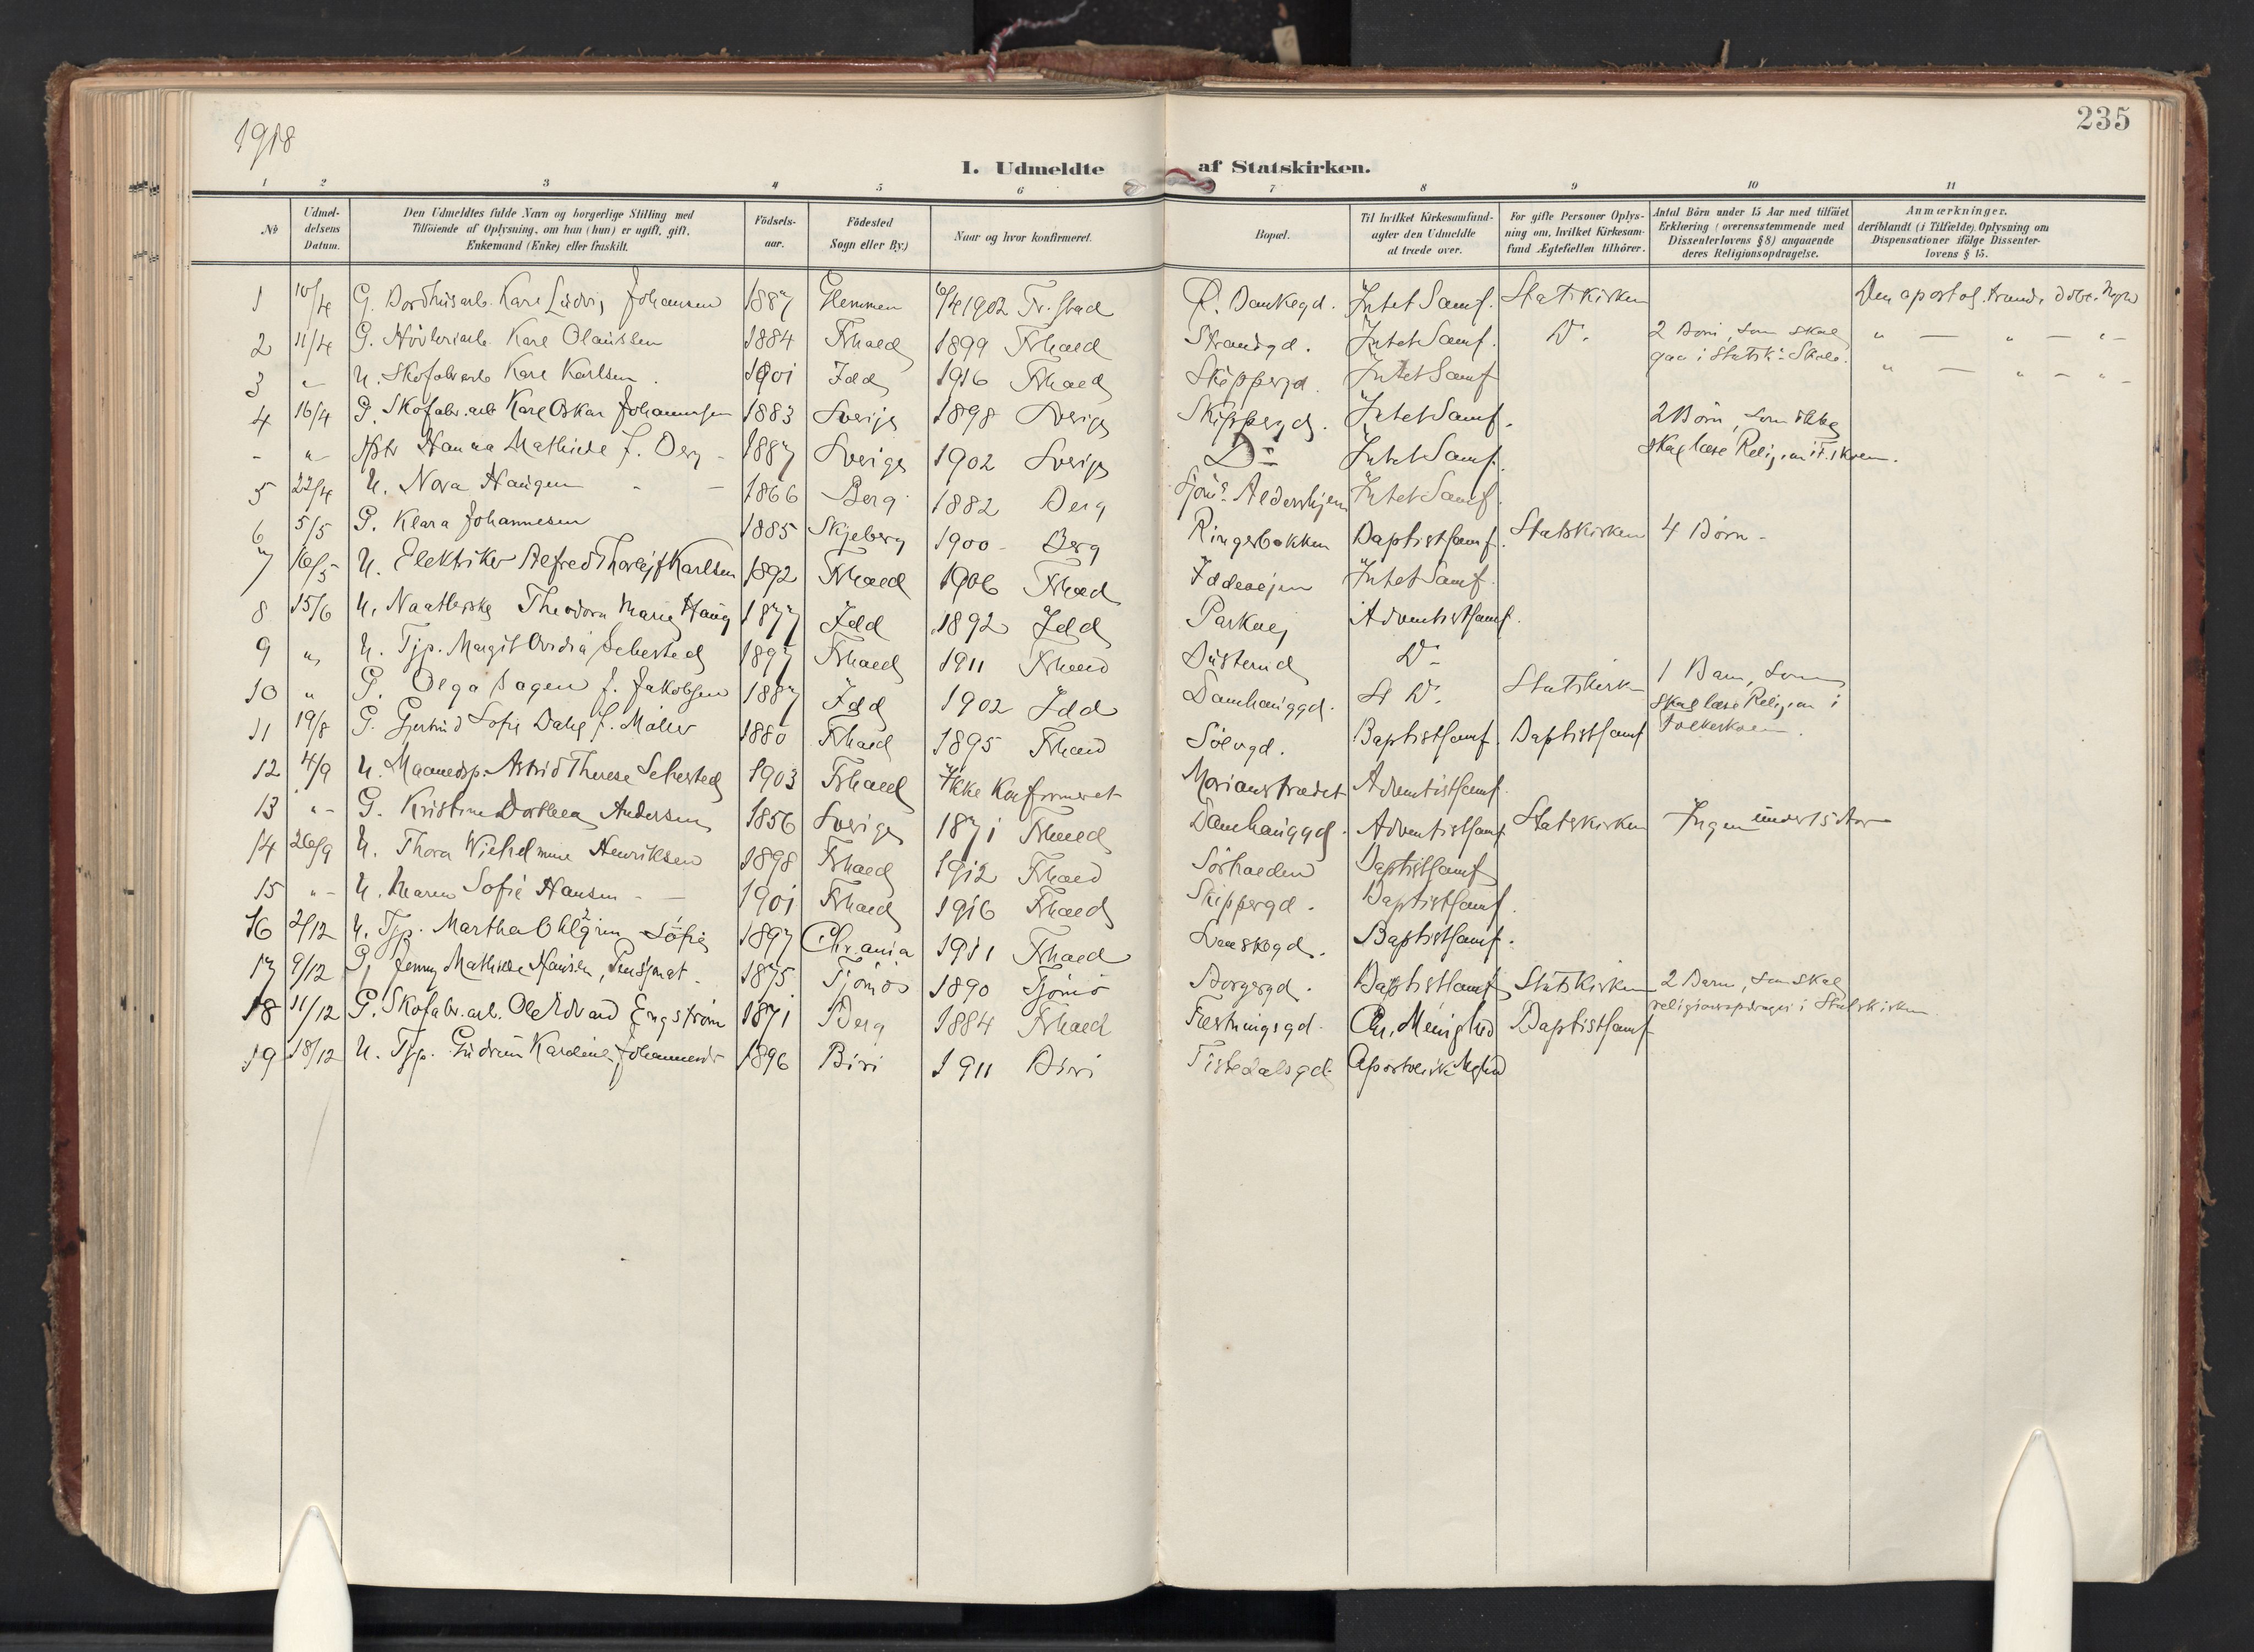 1918
235
I. Udmeldte af Statskirken.
1 2 3 4 5 6 7 8 9 10 11
No
Udmeldelsens Datum.
Den Udmeldtes fulde Navn og borgerlige Stilling med Tilföiende af Oplysning, om han (hun) er ugift, gift, Enkemand (Enke) eller fraskilt.
Födsels-aar.
Födested Sogn eller By.)
Naar og hvor konfirmeret.
Bopæl.
Til hvilket Kirkesamfund agter den Udmeldte at træde over.
For gifte Personer Oplysning om, hvilket Kirkesamfund Ægtefællen tilhörer.
Antal Börn under 15 Aar med tilföiet Erklæring (overensstemmende med Dissenterlovens § 8) angaaende deres Religionsopdragelse.
Anmærkninger. deriblandt (i Tilfælde) Oplysning om Dispensationer ifölge Dissenterlovens § 15.
1 10/4 G. Karl Ludvig Johansen 1887 Glemmen 6/4 1902 Fr.stad Intet Samf. Statskirken Den apostol.
2 11/4 G. Karl Olaussen 1884 Frhald 1899 Frhald Strandgd. Intet Samf. Do. 2 Born, som skal gaa i Statsk. Skole. " — " — " -
3 " - U. Skofabr.arb Karl Karlsen. 1901 Idd 1916 Frhald Skippergd. Intet Samf " — " — " -
4 16/4 G. Skofabr.arb Karl Oskar Johannesen 1883 Sverige 1898 Sverige Skippergd. Intet Samf. 2 Börn, som ikke
- " - Hstr Hanna Mathilde f. Berg - 1887 Sverige 1902 Sverige Do Intet Samf. skal læse Religion i F.skolen.
5 22/4 U. Nora Haugen - — 1866 Berg 1882 Berg Aldershjem Intet Samf.
6 5/5 G. Klara Johannesen 1885 Skjeberg 1900 - Berg Ringerbakken Baptistsamf. Statskirken 4 Börn -
7 16/5 U. Elektriker Alfred Thorleif Karlsen 1892 Frhald 1906 Frhald Iddevejen Intet Samf.
8 15/6 U. Theodora Marie Haug 1877 Idd 1892 Idd Parkvej Adventistsamf.
9 " U. Tjp. Margit Ovidia Sehested 1897 Frhald 1911 Frhald Do
10 " G. Olga Hagen f. Jakobsen 1887 Idd 1902 Idd Damhauggd. Do. Statskirk 1 Barn, som skal læse Religion i Folkeskolen.
11 19/8 G. Gjertrud Sofie Dahl f. Möller 1880 Frhald 1895 Frhald Sölvgd. Baptistsamf. Baptistsamf
12 4/9 U. Maanedsp. Astrid Therese Sehested 1903 Frhald Ikke Konfirmeret Marianstrædet Adventistsamf.
13 " - G. Kristine Dorthea Andersen 1856 Sverige 1871 Frhald Damhauggd. Adventistsamf. Statskirken Ingen under 15 Aar
14 26/9 U. Thora Wilhelmine Henriksen 1898 Frhald 1912 Frhald Sörhalden Baptistsamf
15 " - U. Maren Sofie Hansen - — 1901 Frhald 1916 Frhald Skippergd. Baptistsamf.
16 2/12 U. Tjp. Martha Ohlgren Sofie 1897 Chr.ania 1911 Frhald Svenskegd. Baptistsamf.
17 9/12 G. Jenny Mathilde Hansen, Pensjonat. 1875 Tjömö 1890 Tjömö Borgergd. Baptistsamf Statskirken 2 Barn, som skal religionsopdrages i Statskirken
18 11/12 G. Skofabr.arb. Ole Edvard Engström 1871 Berg 1884 Frhald Fæstningsgd. Chr. Menighed Baptistsamf
19 18/12 U. Tjp. Gudrun Karoline Johannesdr 1896 Biri 1911 Biri Tistedalsgd. Apostolisk Mghed